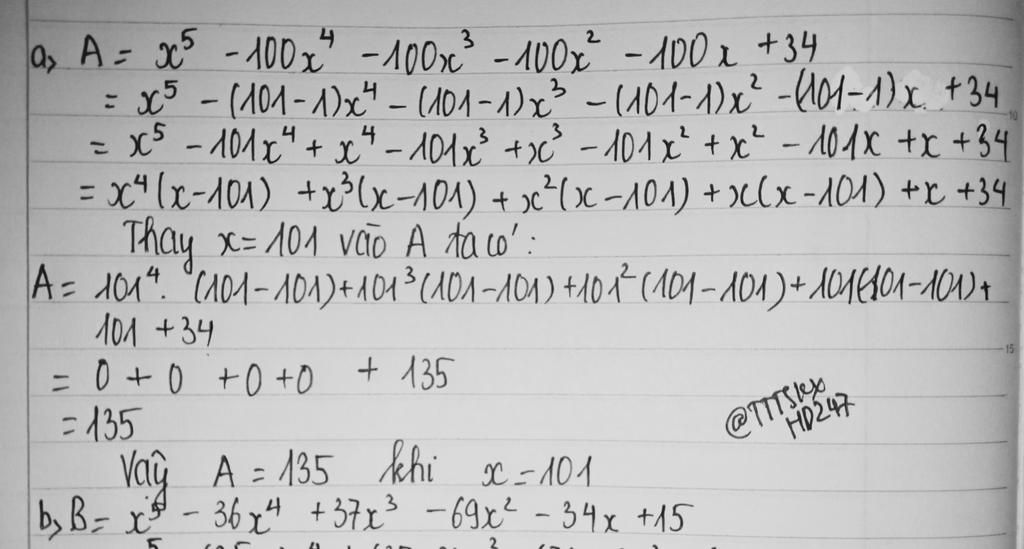 a, A = x⁵ - 100x⁴ - 100x³ - 100x² - 100x + 34
= x⁵ - (101-1)x⁴ - (101-1)x³ - (101-1)x² - (101-1)x + 34
= x⁵ - 101x⁴ + x⁴ - 101x³ + x³ - 101x² + x² - 101x + x + 34
= x⁴(x-101) + x³(x-101) + x²(x-101) + x(x-101) + x + 34
Thay x = 101 vào A ta có:
A = 101⁴. (101-101) + 101³(101-101) + 101²(101-101) + 101(101-101) +
101 + 34
= 0 + 0 + 0 + 0 + 135
= 135
Vậy A = 135 khi x = 101
b, B = x⁵ - 36x⁴ + 37x³ - 69x² - 34x + 15
10
15
HD247